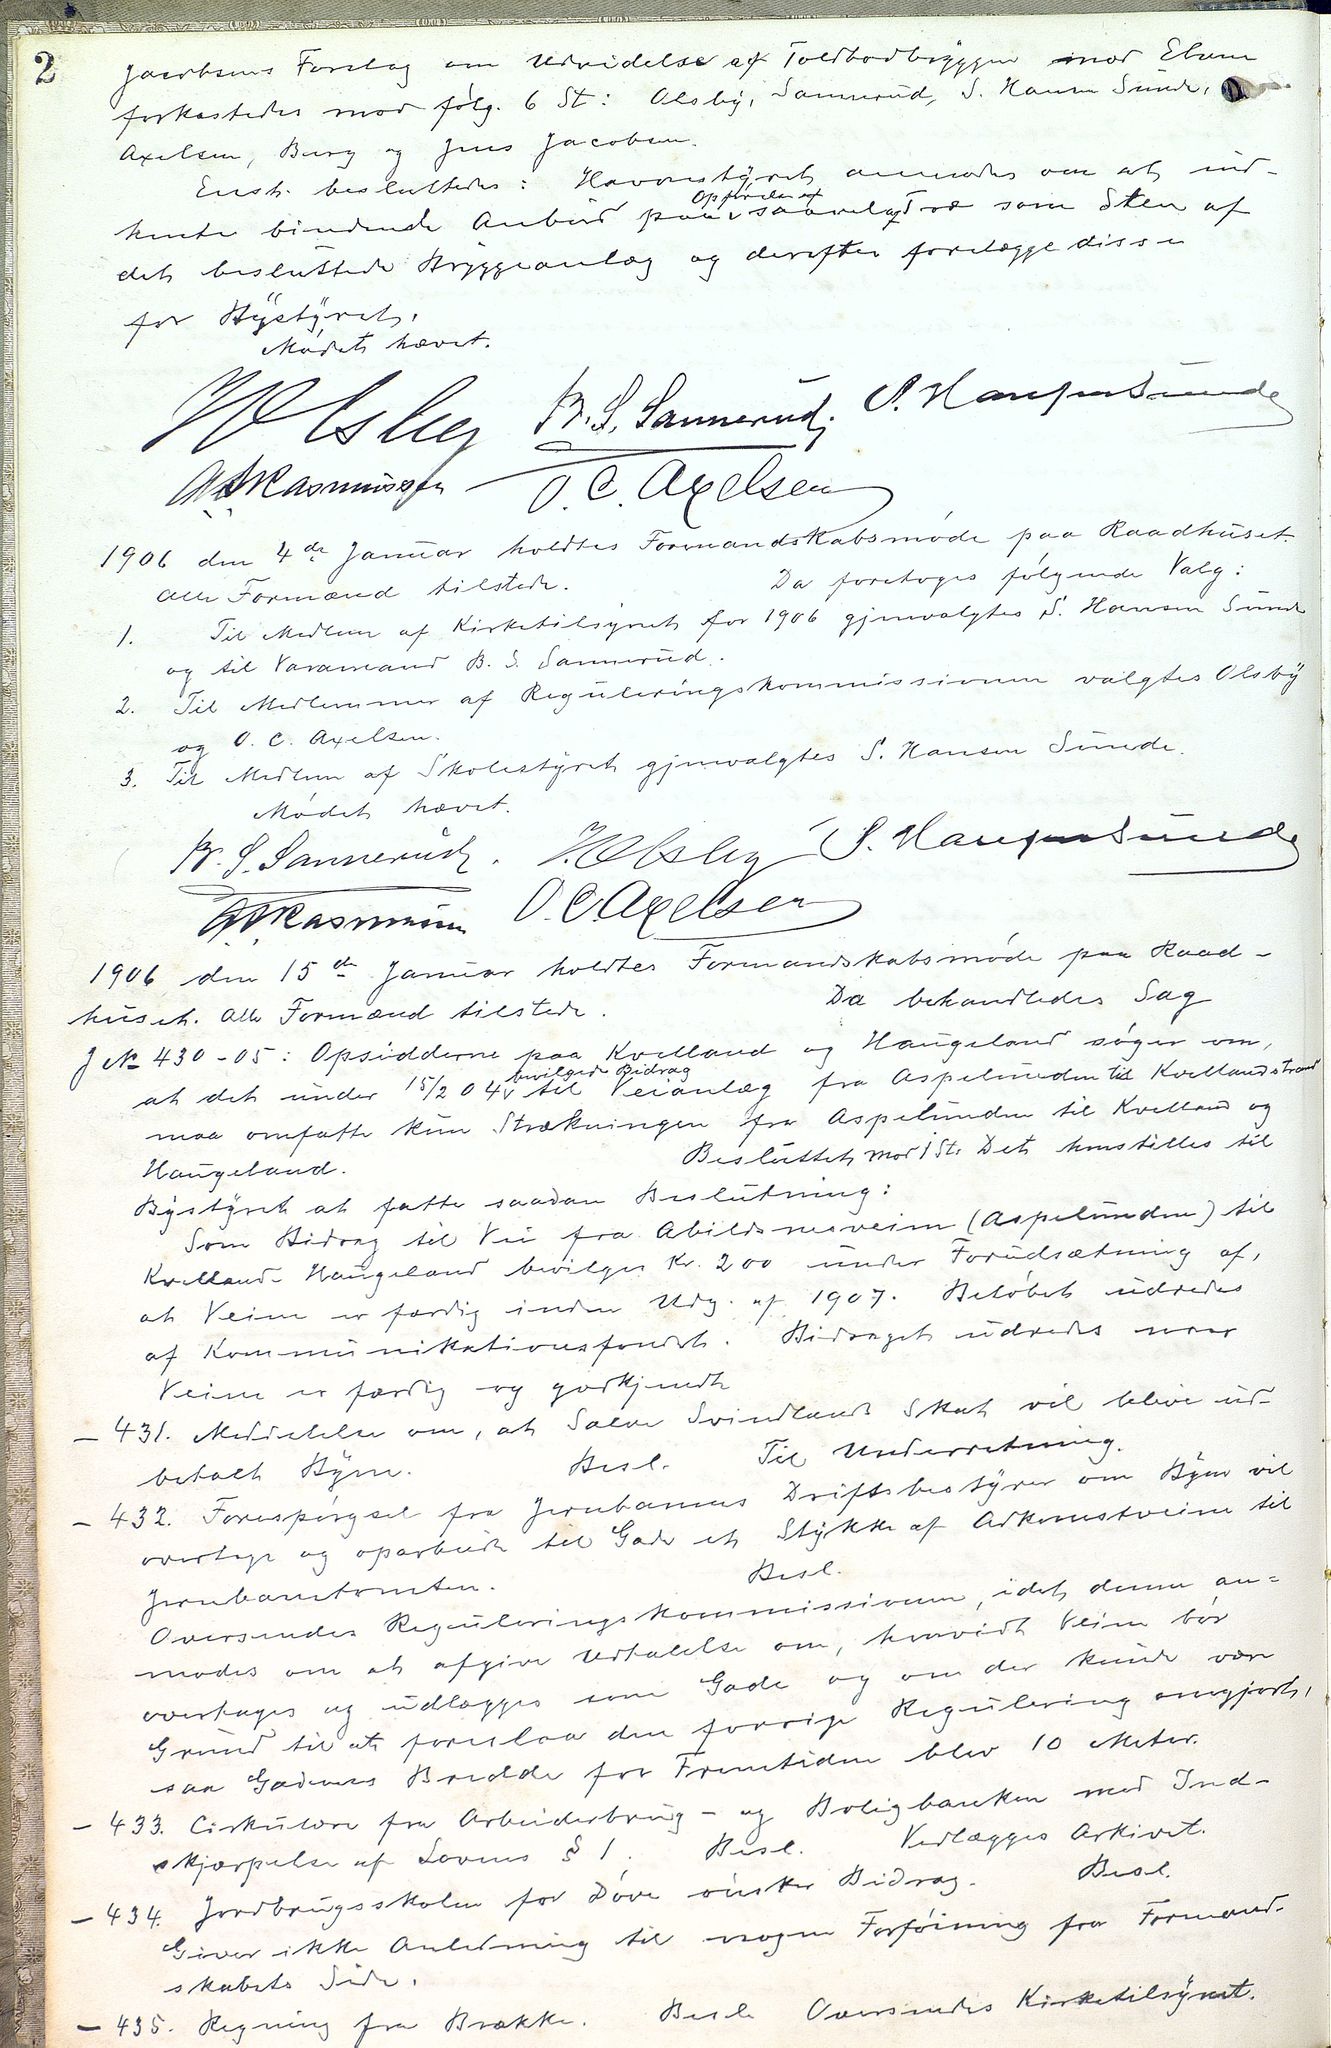 2
Jacobsens Forslag om Udvidelse af Toldbodbryggen mod Elven
forkastedes mod følg. 6 St: Olsby, Sannerud, S. Hansen Sunde,
Axelsen, Berg og Jens Jacobsen.
Enst. besluttedes: Havnestyret anmodes om at ind-
hente bindende Anbud paa Opførelse af saavel af Træ som Sten af
det besluttede Bryggeanlæg og derefter forelægge disse
for Bystyret.
Mødet hævet.
Olsby B. S. Sannerud. S. Hansen Sunde
Rasmussen O. C. Axelsen
1906 den 4de Januar holdtes Formandskabsmøde paa Raadhuset.
Alle Formænd tilstede. Da foretoges følgende Valg:
1. Til Medlem af Kirketilsynet for 1906 gjenvalgtes S. Hansen Sunde
og til Varamand B. S. Sannerud.
2. Til Medlemmer af Reguleringskommissionen valgtes Olsby
og O. C. Axelsen.
3. Til Medlem af Skolestyret gjenvalgtes S. Hansen Sunde.
Mødet hævet.
B. S. Sannerud. Olsby S. Hansen Sunde
Rasmussen O. C. Axelsen
1906 den 15de Januar holdtes Formandskabsmøde paa Raad-
huset. Alle Formænd tilstede. Da behandledes Sag
J № 430-05: Opsidderne paa Kvelland og Haugeland søger om,
at det under 15/2 04 bevilgede Bidrag til Veianlæg fra Aspelunden til Kvellandstrand
maa omfatte kun Strækningen fra Aspelunden til Kvelland og
Haugeland. Besluttet mod 1 St. Det henstilles til
Bystyret at fatte saadan Beslutning:
Som Bidrag til Vei fra Abildsnesveien (Aspelunden) til
Kvelland-Haugeland bevilges Kr. 200 under Forudsætning af,
at Veien er færdig inden Udg. af 1907. Beløbet udredes
af Kommunikationsfondet. Bidraget udredes naar
Veien er færdig og godkjendt
— 431. Meddelelse om, at Salve Svindlands Skat vil blive ud-
betalt Byen. Besl. Til Underretning.
— 432. Forespørgsel fra Jernbanens Driftsbestyrer om Byen vil
overtage og oparbeide til Gade et Stykke af Adkomstveien til
Jernbanetomten. Besl.
Oversendes Reguleringskommissionen, idet denne an-
modes om at afgive Udtalelse om, hvorvidt Veien bør
overtages og udlægges som Gade og om der kunde være
Grund til at foreslaa den forrige Regulering omgjort,
saa Gadens Bredde for Fremtiden blev 10 Meter.
— 433. Cirkulære fra Arbeiderbrug- og Boligbanken med Ind-
skjærpelse af Lovens § 1. Besl. Vedlægges Arkivet.
— 434. Jordbrugsskolen for Døve ønsker Bidrag. Besl.
Giver ikke Anledning til nogen Forføining fra Formand-
skabets Side.
— 435. Regning fra Brække. Besl. Oversendes Kirketilsynet.